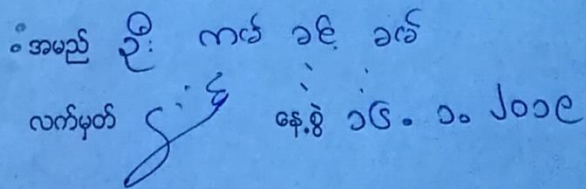 အမည် ဦး ကင် ခင် ခင်
လက်မှတ် နေ့စွဲ ၁၆. ၁. ၂၀၁၉